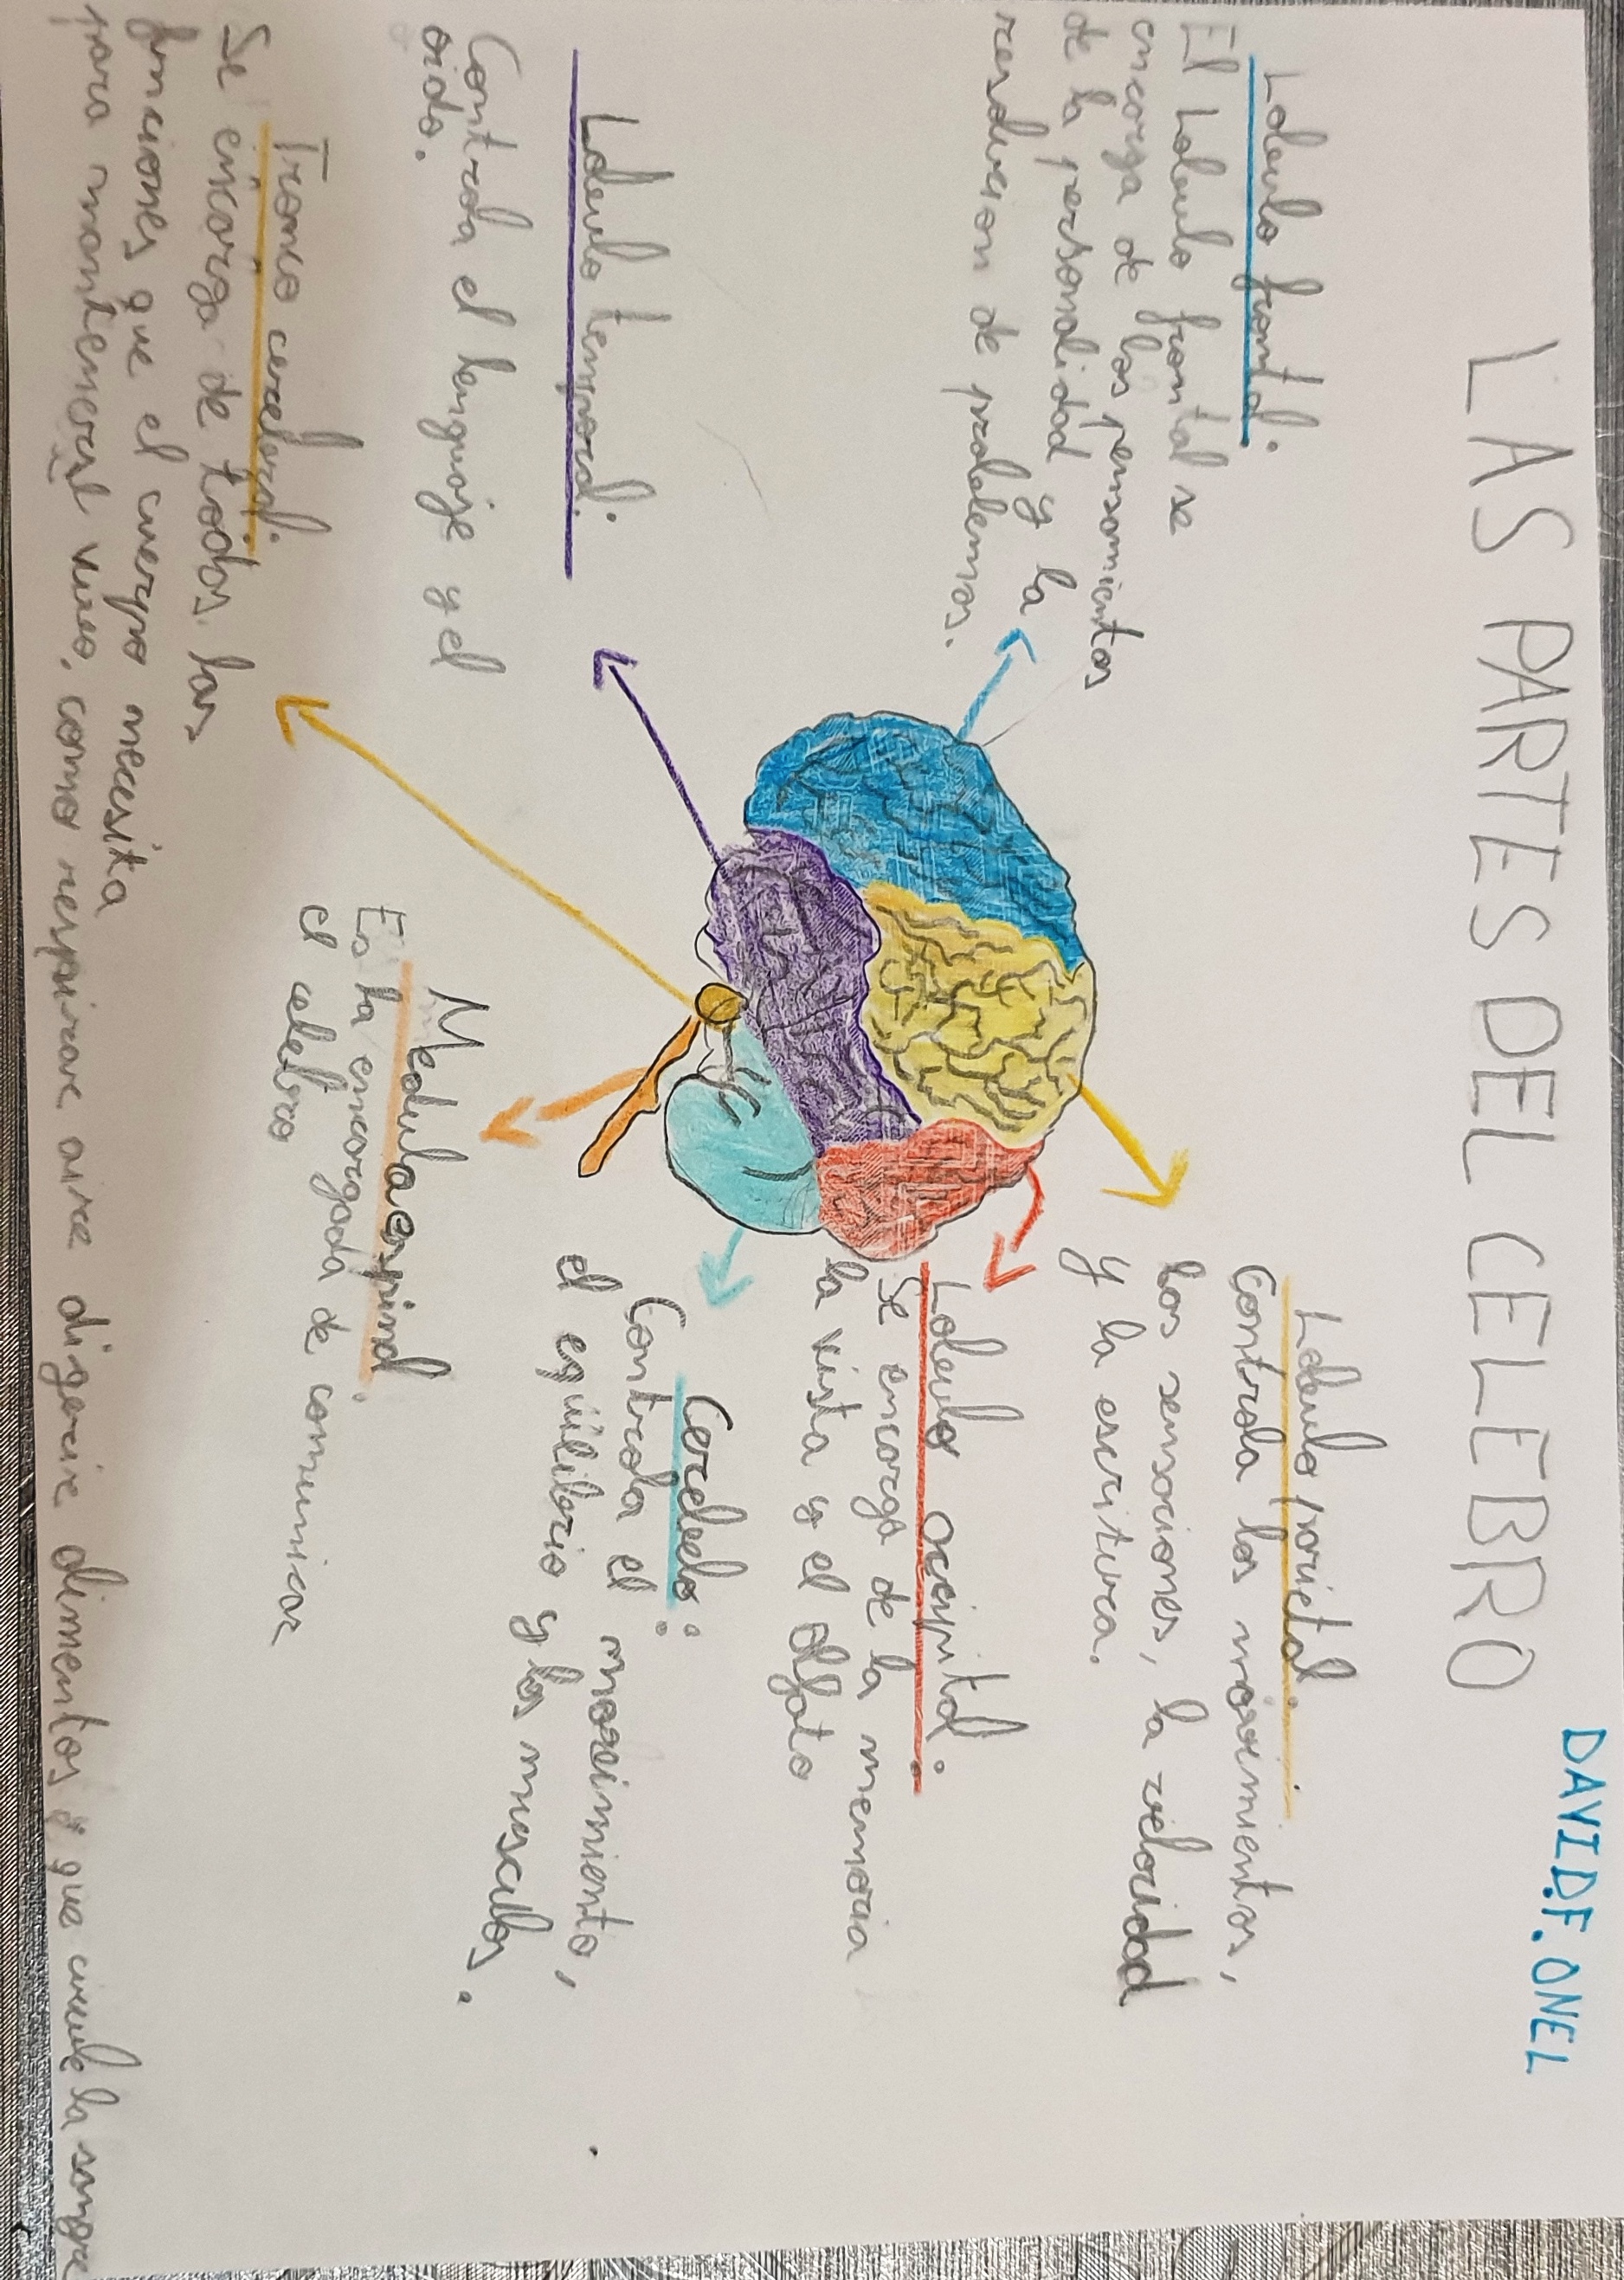 DAVID.F.ONEL
LAS PARTES DEL CELEBRO
Lobulo frontal:
El Lobulo frontal se
encarga de los pensamientos
de la personalidad y la
resolucion de problemas.
Lobulo temporal:
Controla el lenguaje y el
oido.
Tronco cerebral:
Se encarga de todas las
funciones que el cuerpo necesita
para mantenerse vivo, como respirar aire digerir alimentos y que circule la sangre
Lobulo parietal:
Controla los movimientos,
los sensaciones, la velocidad
y la escritura.
Lobulo occipital:
Se encarga de la memoria
la vista y el olfato
Cerebelo:
Controla el movimiento,
el equilibrio y los musculos.
Medula espinal:
Es la encargada de comunicar
el celebro